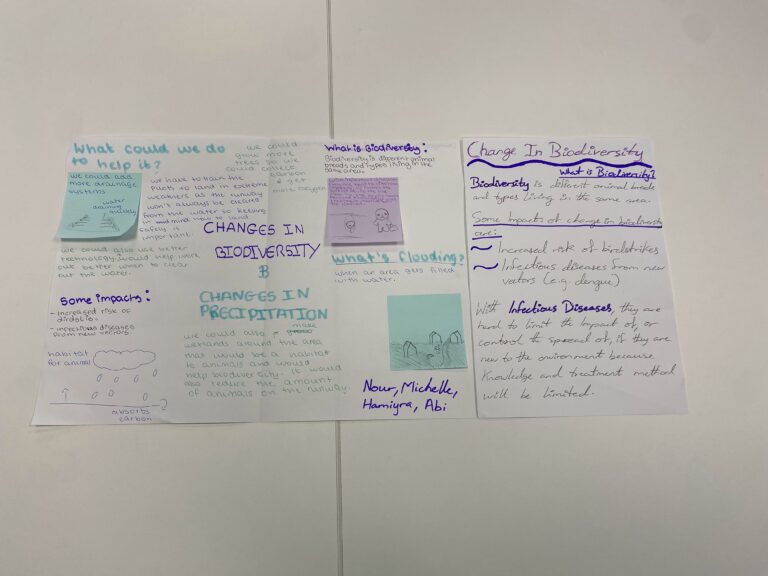 What could we do
to help it?
we could
grow more
trees so we
could collect
carbon
& get
more oxygen
we could add
more drainage
systems
water
draining
quickly
we have to train the
pilots to land in extreme
weathers as the runway
won't always be cleared
from the water so keeping
in mind how to land
safely is
important.
we could also use better
technology, would help work
out better when to clear
out the water.
Some impacts:
- increased risk of
- infectious diseases
from new vectors.
habitat
for animal
absorbs
carbon
CHANGES IN
BIODIVERSITY
&
CHANGES IN
PRECIPITATION
we could also make
wetlands around the area
that would be a habitat
to animals and would
help biodiversity. It would
also reduce the amount
of animals on the runway.
What is Biodiversity:
Biodiversity is different animal
breads and types living in the
same area.
What's flooding?
when an area gets filled
with water.
Nour, Michelle,
Hamiyra, Abi
Change In Biodiversity
What is Biodiversity?
Biodiversity is different animal breeds
and types living in the same area.
Some Impacts of change in biodiversity
are:
~ Increased risk of birdstrikes
~ Infectious diseases from new
vectors (e.g. dengue)
With Infectious Diseases, they are
hard to limit the impact of, or
control the spread of, if they are
new to the environment because
knowledge and treatment method
will be limited.